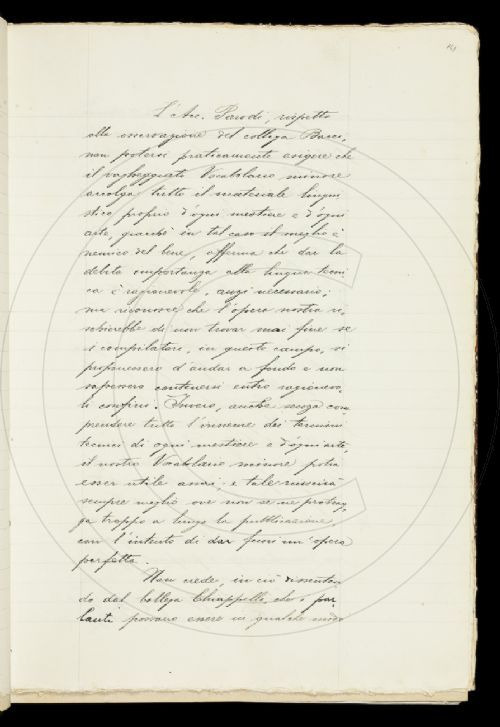 L'Acc. Parodi, rispetto
alla osservazione del collega Bacci,
non potersi praticamente esigere che
il vagheggiato Vocabolario minore
accolga tutto il materiale lingui
stico proprio d'ogni mestiere e d'ogni
arte, giacchè in tal caso il meglio è
nemico del bene, afferma che dar la
debita importanza alla lingua tecni
ca è ragionevole, anzi necessario;
ma riconosce che l'opera nostra ri,
schierebbe di non trovar mai fine se
i compilatori, in questo campo, si
proponessero d'andar a fondo e non
sapessero contenersi entro ragionevo,
li confini. Invero, anche senza com
prendere tutto l'insieme dei termini
tecnici di ogni mestiere e d'ogni arte,
il nostro Vocabolario minore potrà
esser utile assai e tale riuscirà
sempre meglio ove non se ne protrag,
ga troppo a lungo la pubblicazione,
con l'intento di dar fuori un'opera
perfetta.
Non crede, in ciò dissenten
do dal collega Chiappelli, che i par,
lanti possano essere in qualche modo